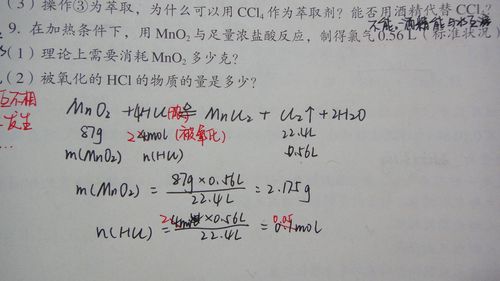 (3) 操作③为萃取，为什么可以用CCl₄作为萃取剂？能否用酒精代替CCl₄？
不能，酒精能与水互溶
9. 在加热条件下，用MnO₂与足量浓盐酸反应，制得氯气0.56 L（标准状况）
(1) 理论上需要消耗MnO₂多少克？
(2) 被氧化的HCl的物质的量是多少？
互不相
发生
MnO₂ + 4HCl(浓) ≜ MnCl₂ + Cl₂↑ + 2H₂O
87g 2mol (被氧化) 22.4L
m(MnO₂) n(HCl) 0.56L
m(MnO₂) = 87g×0.56L / 22.4L = 2.175g
n(HCl) = 2mol×0.56L / 22.4L = 0.05mol